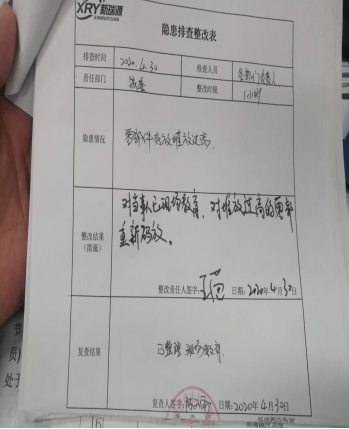 XRY新瑞源
XINRUIYUAN
隐患排查整改表
排查时间 2020.4.30 检查人员
责任部门 整改时限 1小时
隐患情况 零部件存放堆放过高.
整改结果
(措施)
对当事人已现场教育，对堆放过高的零部
重新码放。
整改责任人签字: 日期: 2020年4月30日
复查结果 已整理
复查人签字: 日期: 2020年4月30日